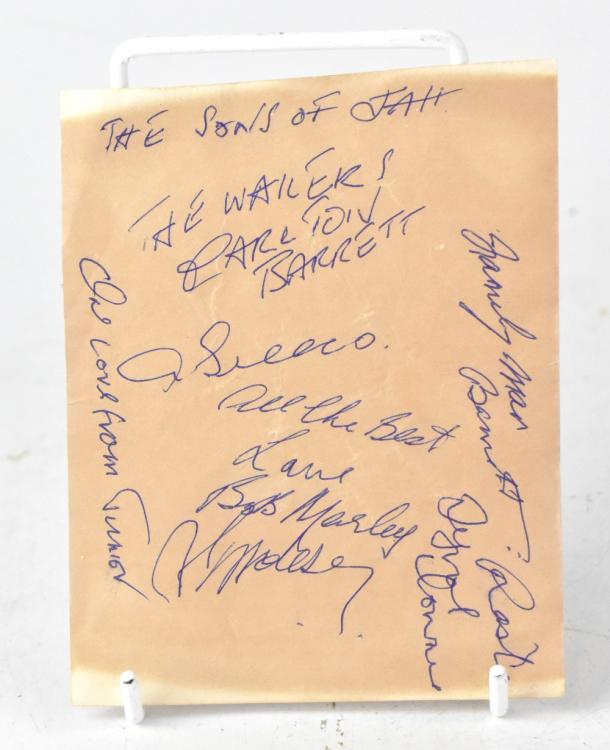 THE SONS OF JAH
THE WAILERS
CARLTON
BARRETT
One Love from Junior
Seeco.
All the Best
Love
Bob Marley
Family Man
Barrett
Rast